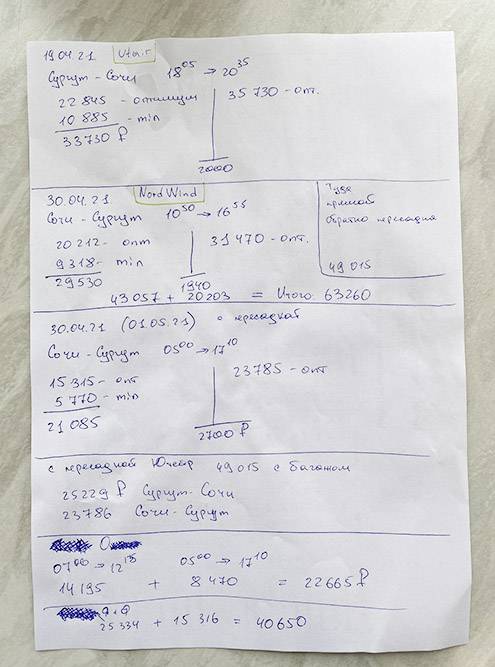 19.04.21 Utair
Сургут - Сочи 18⁰⁵ → 20³⁵
22 845 - оптимум 35 730 - опт.
10 885 - min
33730 ₽
2000
30.04.21 NordWind
Сочи - Сургут 10⁵⁰ → 16⁵⁵
20 212 - опт 31 470 - опт.
9 318 - min
29530
1940
Туда
прямой
обратно пересадка
49 015
43 057 + 20 203 = Итого: 63260
30.04.21 (01.05.21) с пересадкой
Сочи - Сургут 05⁰⁰ → 17¹⁰
15 315 - опт 23785 - опт
5 770 - min
21 085
2700 ₽
с пересадкой Ютэйр 49 015 с багажом
25229 ₽ Сургут - Сочи
23 786 Сочи - Сургут
07⁰⁰ → 12¹⁵ 05⁰⁰ → 17¹⁰
14 195 + 8 470 = 22665 ₽
25 334 + 15 316 = 40650